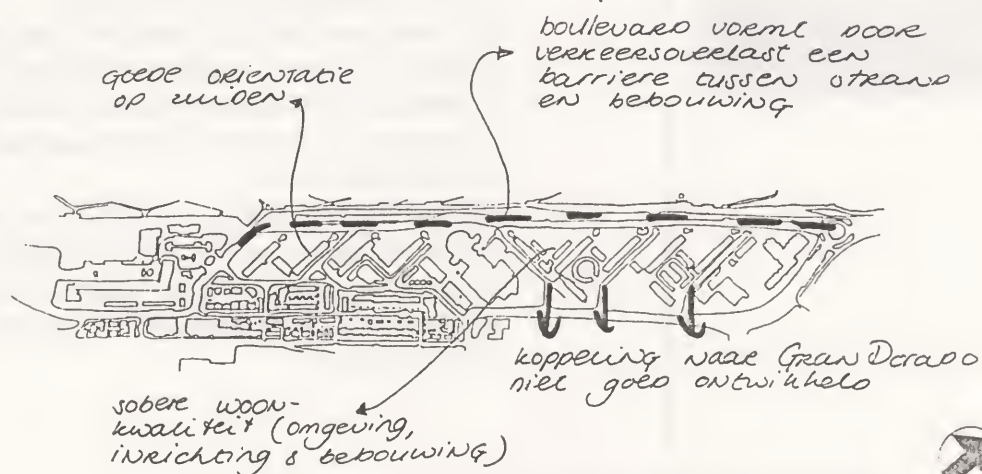 boulevard vormt door
verkeersoverlast een
barriere tussen strand
en bebouwing
goede orientatie
op zuiden
koppeling naar Gran Dorado
niet goed ontwikkeld
sobere woon-
kwaliteit (omgeving,
inrichting & bebouwing)